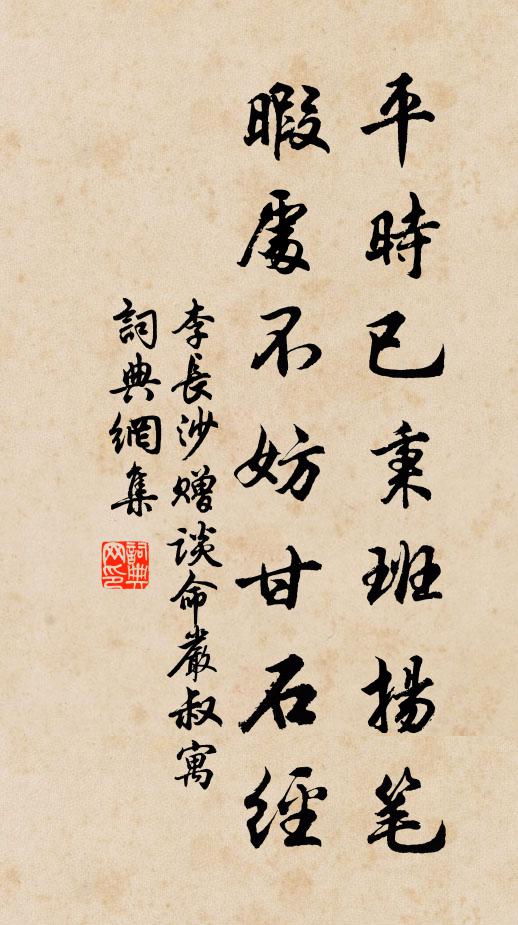 平時已秉班揚笔
暇處不妨甘石經
李長沙赠談命嚴叔寓
詞典網集
詞典
网印